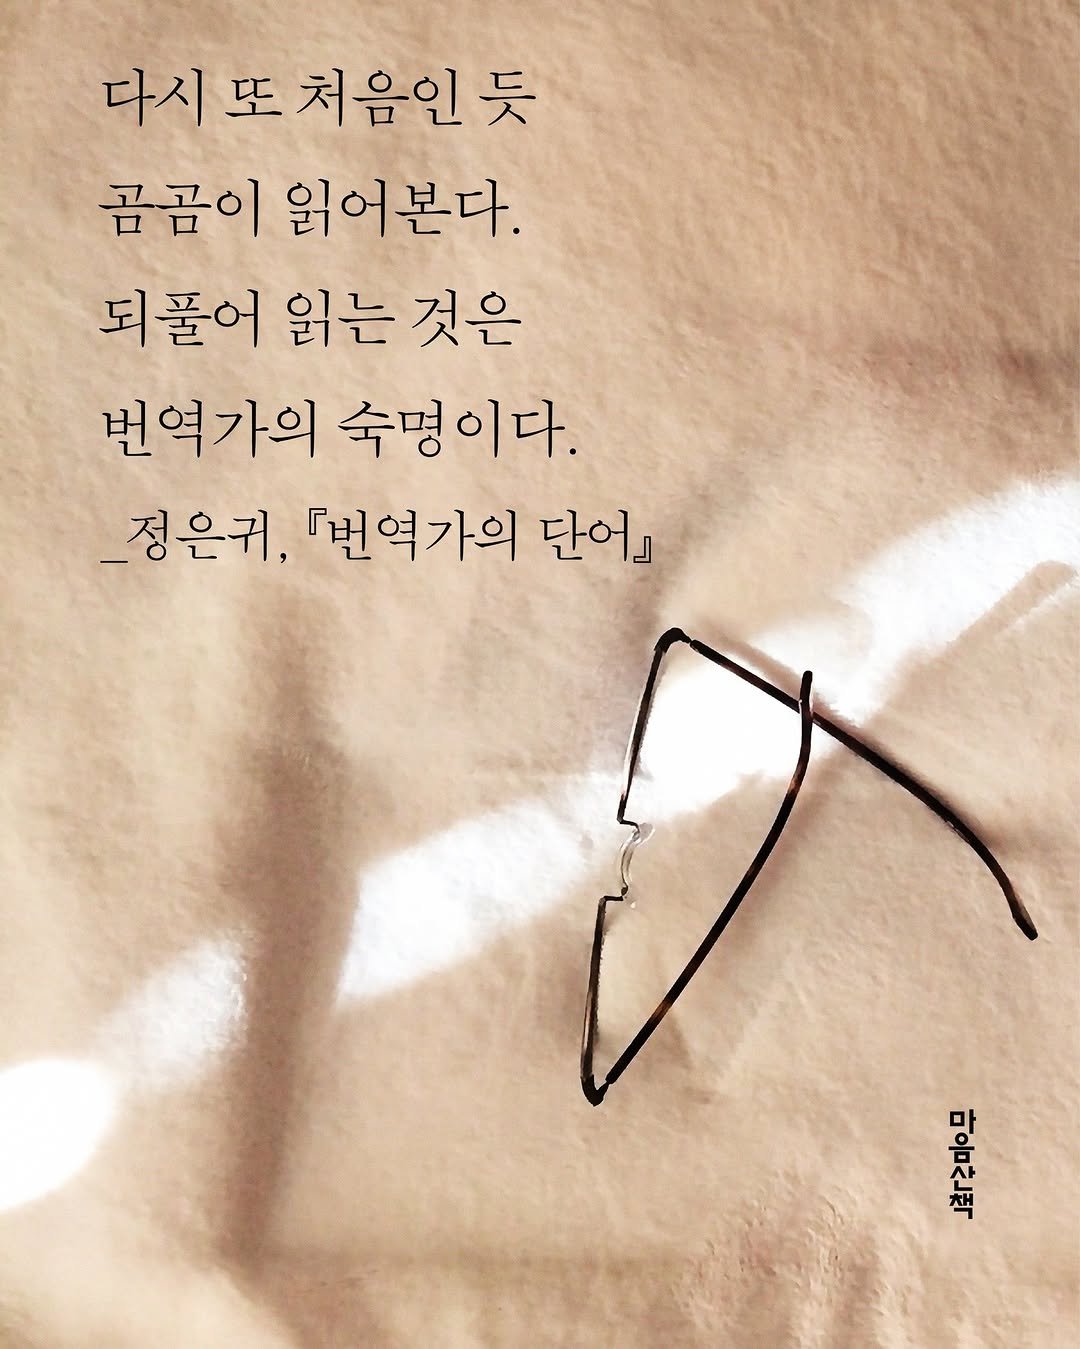 다시 또 처음인 듯
곰곰이 읽어본다.
되풀어 읽는 것은
번역가의 숙명이다.
_정은귀, 『번역가의 단어』
마음산책